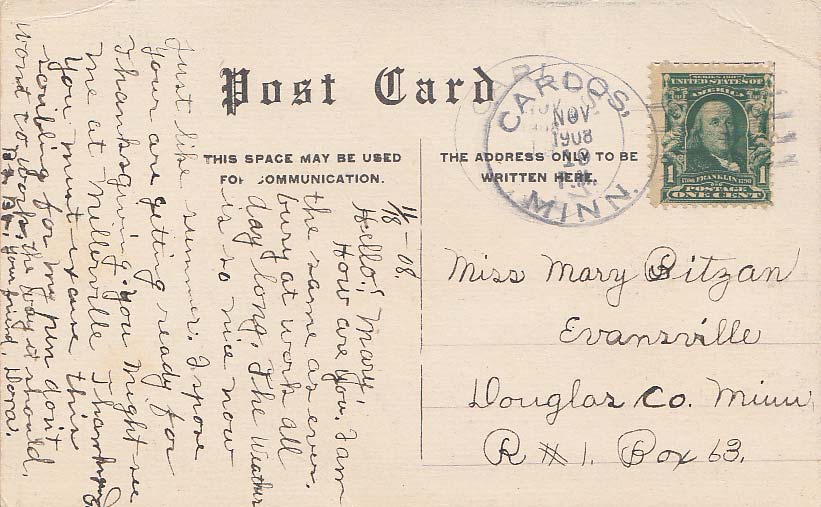 Post Card
THIS SPACE MAY BE USED
FOR COMMUNICATION.
THE ADDRESS ONLY TO BE
WRITTEN HERE.
CARLOS,
NOV
1908
MINN.
SERIES 1902
UNITED STATES OF
AMERICA
1 FRANKLIN 1
POSTAGE
ONE CENT
11/8-08
Hello! Mary,
How are you. I am
the same as ever.
busy at work all
day long. The Weather
is so nice now
Just like summer. I spose
your are getting ready for
Thanksgiving. you might see
me at Millerville Thanksg
You must excuse this
scribling for my pen don't
want to work the way it should.
your friend, Dora.
Miss Mary Bitzan
Evansville
Douglas Co. Minn
R #1. Box 63.